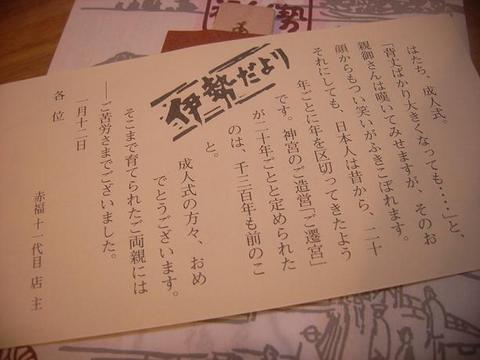 伊勢だより
はたち、成人式。
「背丈ばかり大きくなっても・・・」と、
親御さんは嘆いてみせますが、そのお
顔からもつい笑いがふきこぼれます。
それにしても、日本人は昔から、二十
年ごとに年を区切ってきたよう
です。神宮のご造営「ご遷宮」
が二十年ごとと定められた
のは、千三百年も前のこ
と。
成人式の方々、おめ
でとうございます。
そこまで育てられたご両親には
――ご苦労さまでございました。
一月十二日
赤福十一代目 店主
各位